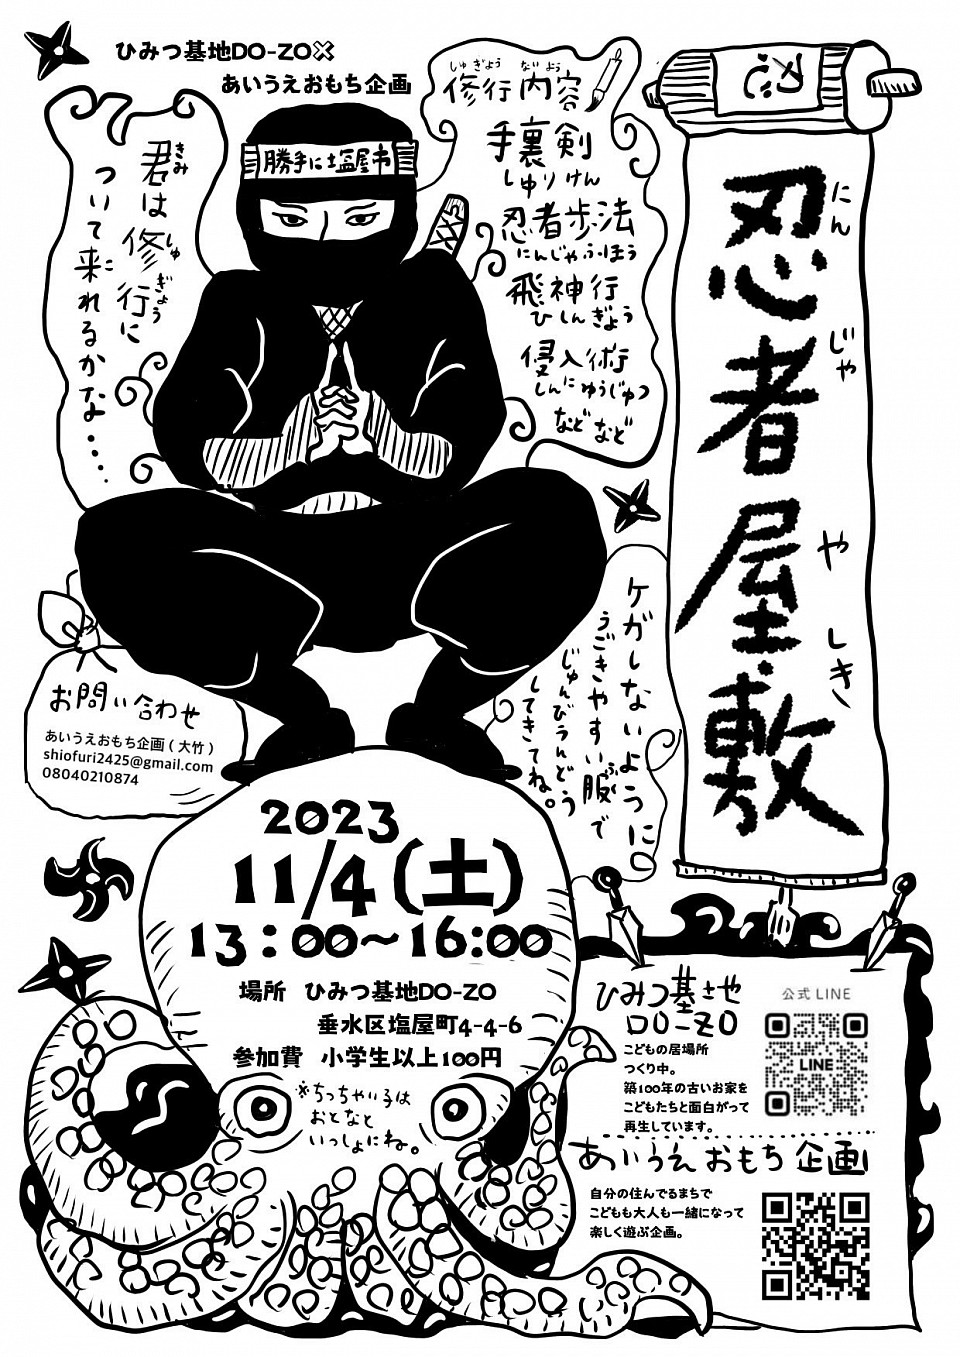 ひみつ基地DO-ZO×
あいうえおもち企画
忍者屋敷
にん
じゃ
や
しき
勝手に塩屋市
君は修行に
きみ
しゅぎょう
ついて来れるかな・・・・
こ
しゅぎょう ないよう
修行内容
手裏剣
しゅりけん
忍者歩法
にんじゃふほう
飛神行
ひしんぎょう
侵入術
しんにゅうじゅつ
などなど
ケガしないように
うごきやすい服で
ふく
じゅんびうんどう
してきてね。
お問い合わせ
あいうえおもち企画(大竹)
shiofuri2425@gmail.com
08040210874
2023
11/4(土)
13:00~16:00
場所 ひみつ基地DO-ZO
垂水区塩屋町4-4-6
参加費 小学生以上100円
※ちっちゃい子は
おとなと
いっしょにね。
ひみつ基地
DO-ZO
こどもの居場所
つくり中。
築100年の古いお家を
こどもたちと面白がって
再生しています。
公式LINE
LINE
あいうえおもち企画
自分の住んでるまちで
こどもも大人も一緒になって
楽しく遊ぶ企画。